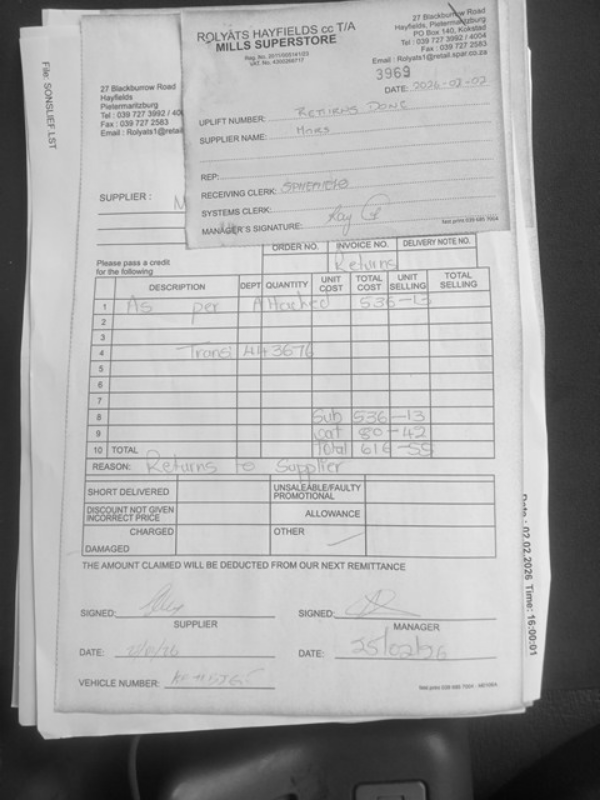 ROLYATS HAYFIELDS cc T/A
MILLS SUPERSTORE
27 Blackburrow Road
Hayfields, Pietermaritzburg
PO Box 140, Kokstad
Tel : 039 727 3992 / 4004
Fax : 039 727 2583
Email : Rolyats1@retail.spar.co.za
3969
DATE: 2026-02-02
UPLIFT NUMBER: RETURNS DONE
SUPPLIER NAME: MARS
REP:
RECEIVING CLERK:
SYSTEMS CLERK:
MANAGER'S SIGNATURE:
File: SONSLIEF.LST
27 Blackburrow Road
Hayfields
Pietermaritzburg
Tel : 039 727 3992 / 400
Fax : 039 727 2583
Email : Rolyats1@retail
SUPPLIER : M
ORDER NO. INVOICE NO. DELIVERY NOTE NO.
Returns
Please pass a credit
for the following
DESCRIPTION DEPT QUANTITY UNIT COST TOTAL COST UNIT SELLING TOTAL SELLING
1 As per Attached 536-13
2
3
4 Trans: 443676
5
6
7
8 Sub 536-13
9 80-42
10 TOTAL Total 616-55
REASON: Returns to Supplier
SHORT DELIVERED UNSALEABLE/FAULTY PROMOTIONAL
DISCOUNT NOT GIVEN INCORRECT PRICE ALLOWANCE
CHARGED OTHER
DAMAGED
THE AMOUNT CLAIMED WILL BE DEDUCTED FROM OUR NEXT REMITTANCE
SIGNED: SIGNED:
SUPPLIER MANAGER
DATE: DATE: 25/02/26
VEHICLE NUMBER:
Date : 02.02.2026 Time: 16:00:01